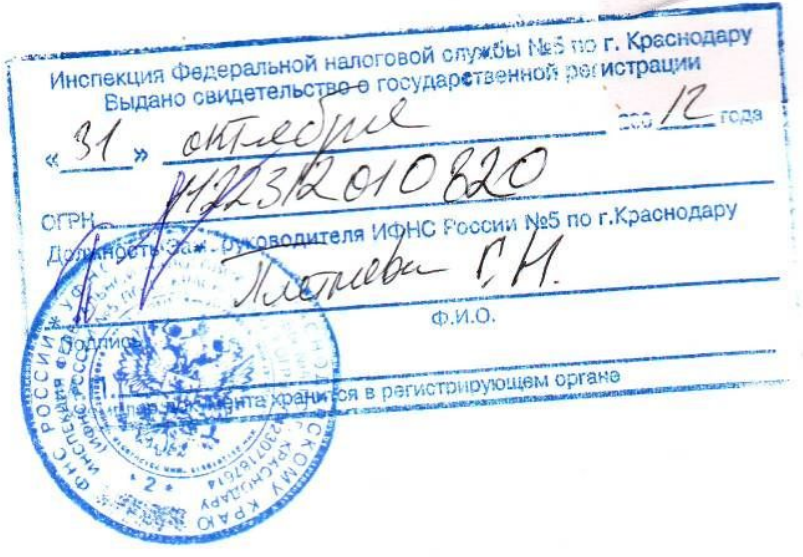 Инспекция Федеральной налоговой службы №5 по г. Краснодару
Выдано свидетельство о государственной регистрации
« 31 » октября 200 12 года
ОГРН 1122312010820
Должность Зам. руководителя ИФНС России №5 по г.Краснодару
Плетнева Г.Н.
Ф.И.О.
Подпись
документа хранится в регистрирующем органе
ФНС РОССИИ * УФНС КРАСНОДАРСКОМУ КРАЮ
ИНСПЕКЦИЯ ФЕДЕРАЛЬНОЙ НАЛОГОВОЙ
(ИФНС РОССИИ КРАСНОДАРУ
* 2 *